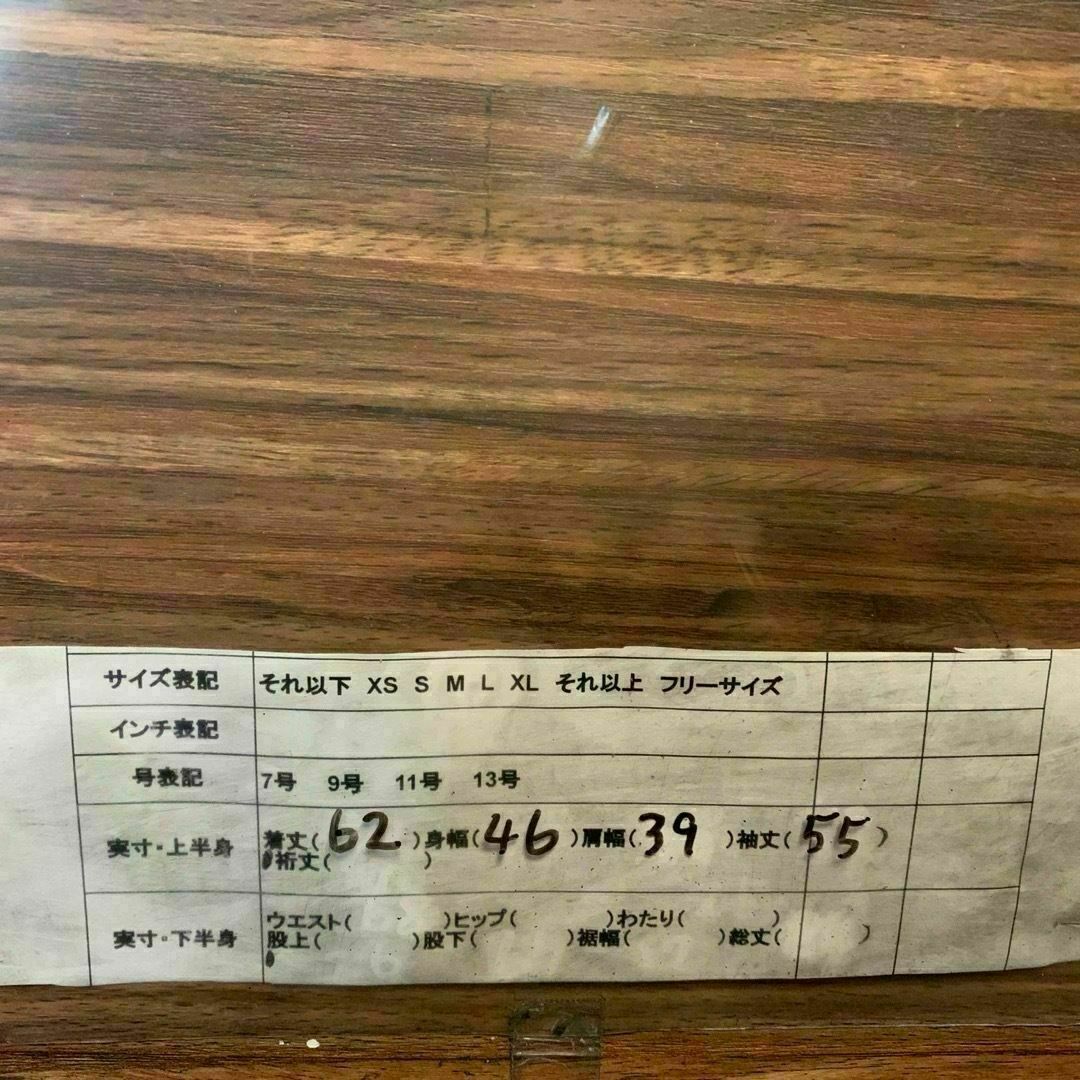 サイズ表記 それ以下 XS S M L XL それ以上 フリーサイズ
インチ表記
号表記 7号 9号 11号 13号
実寸・上半身 着丈(62)身幅(46)肩幅(39)袖丈(55)
裄丈( )
実寸・下半身 ウエスト( )ヒップ( )わたり( )
股上( )股下( )裾幅( )総丈( )